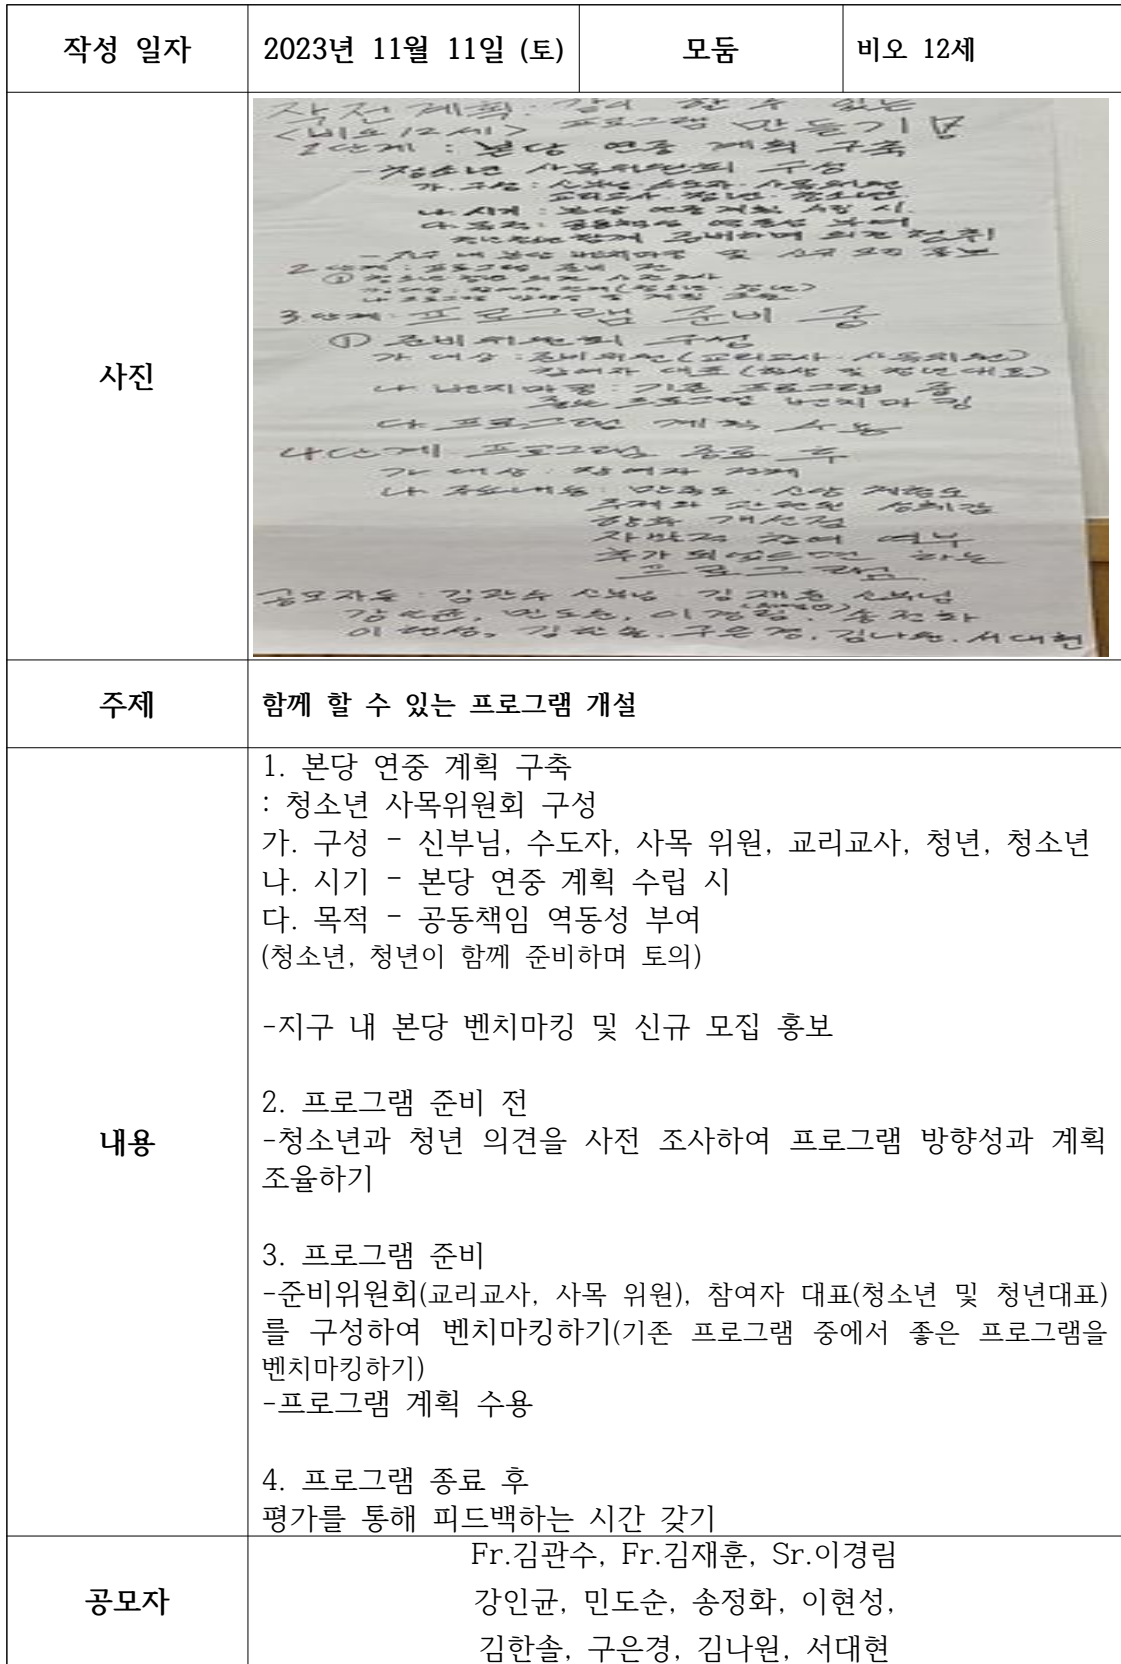 작성 일자 2023년 11월 11일 (토) 모둠 비오 12세
사진
작전 계획: 같이 할 수 있는
<비오 12세> 프로그램 만들기
1단계 : 본당 연중 계획 구축
- 청소년 사목위원회 구성
가. 구성 : 신부님 수도자 사목위원
교리교사 청년 청소년
나 시기 : 본당 연중 계획 수립 시
다 목적 : 공동책임 역동성 부여
함께 준비하며 의견
- 지구 내 본당 벤치마킹 및 신규 모집 홍보
2단계 : 프로그램 준비 전
① 청소년 청년 의견 사전조사
(청소년 · 청년)
3단계 프로그램 준비 중
① 준비위원회 구성
가 대상 : 준비위원 (교리교사 · 사목위원)
참여자 대표 (학생 및 청년대표)
나 벤치마킹 : 기존 프로그램 중
좋은 프로그램 벤치마킹
다 프로그램 계획 수용
4단계 프로그램 종료 후
가 대상 : 참여자 전체
만족도
주제와 관련된
향후 개선점
참여 여부
하는
프로그램
공모자들 : 김관수 신부님 김재훈 신부님
강인균, 민도순, 이경림 송정화
이현성, 김한솔, 구은경, 김나원, 서대현
주제 함께 할 수 있는 프로그램 개설
내용
1. 본당 연중 계획 구축
: 청소년 사목위원회 구성
가. 구성 - 신부님, 수도자, 사목 위원, 교리교사, 청년, 청소년
나. 시기 - 본당 연중 계획 수립 시
다. 목적 - 공동책임 역동성 부여
(청소년, 청년이 함께 준비하며 토의)
-지구 내 본당 벤치마킹 및 신규 모집 홍보
2. 프로그램 준비 전
-청소년과 청년 의견을 사전 조사하여 프로그램 방향성과 계획
조율하기
3. 프로그램 준비
-준비위원회(교리교사, 사목 위원), 참여자 대표(청소년 및 청년대표)
를 구성하여 벤치마킹하기(기존 프로그램 중에서 좋은 프로그램을
벤치마킹하기)
-프로그램 계획 수용
4. 프로그램 종료 후
평가를 통해 피드백하는 시간 갖기
공모자
Fr.김관수, Fr.김재훈, Sr.이경림
강인균, 민도순, 송정화, 이현성,
김한솔, 구은경, 김나원, 서대현